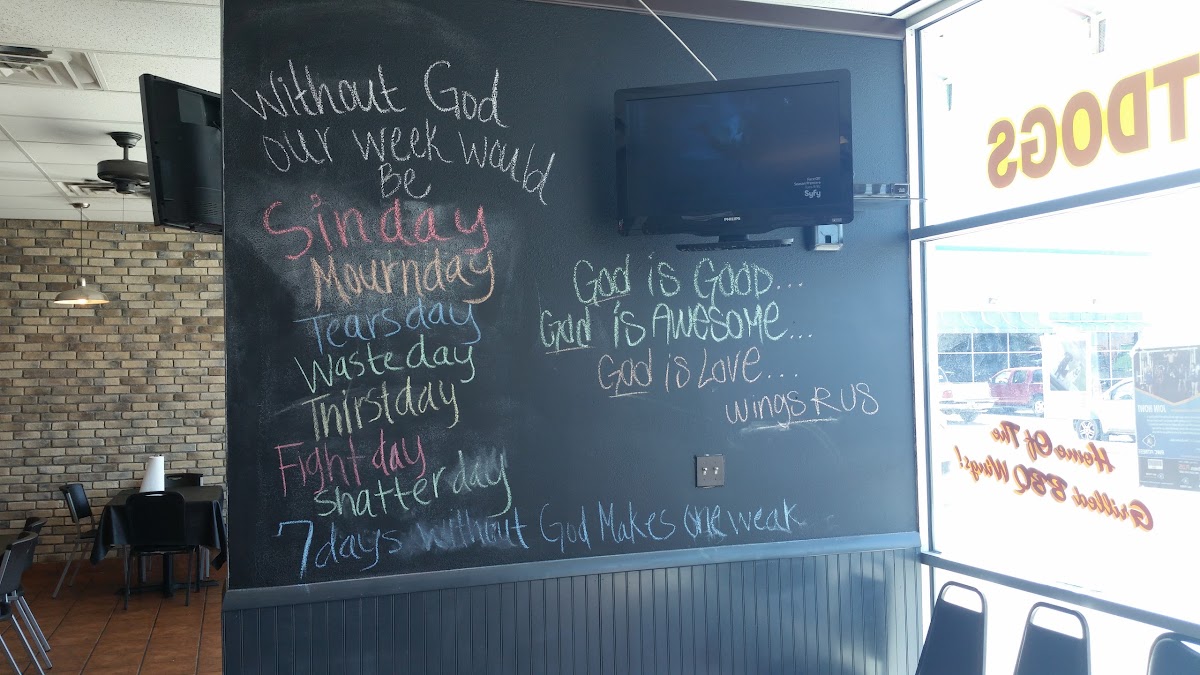 Without God
our week would
Be
Sinday
Mournday
Tearsday
Wasteday
Thirstday
Fightday
shatterday
7 days without God Makes one weak
God is Good...
God is AWESOME...
God is Love...
Wings R US
PHILIPS
Syfy
TDOGS
Home Of The
Grilled BBQ Wings!